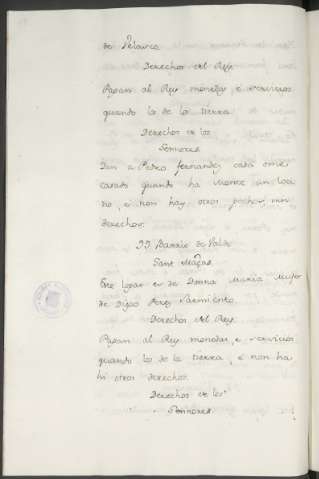 de Velasco
Derechos del Rey
Pagan al Rey monedas e servicios
quando los de la tierra
Derechos de los
Sennores
Dan a Pedro fernandez cada omie
casado quando ha monte un loci
no, e non hay otros pechos, nin
derechos.
Barrio de
Sant
Este logar es de Donna Maria Muger
de Diago Perez Sarmiento
Derechos del Rey
Pagan al Rey monedas, e servicios
quando los de la tierra, e non ha
hi otros derechos.
Derechos de los
Sennores